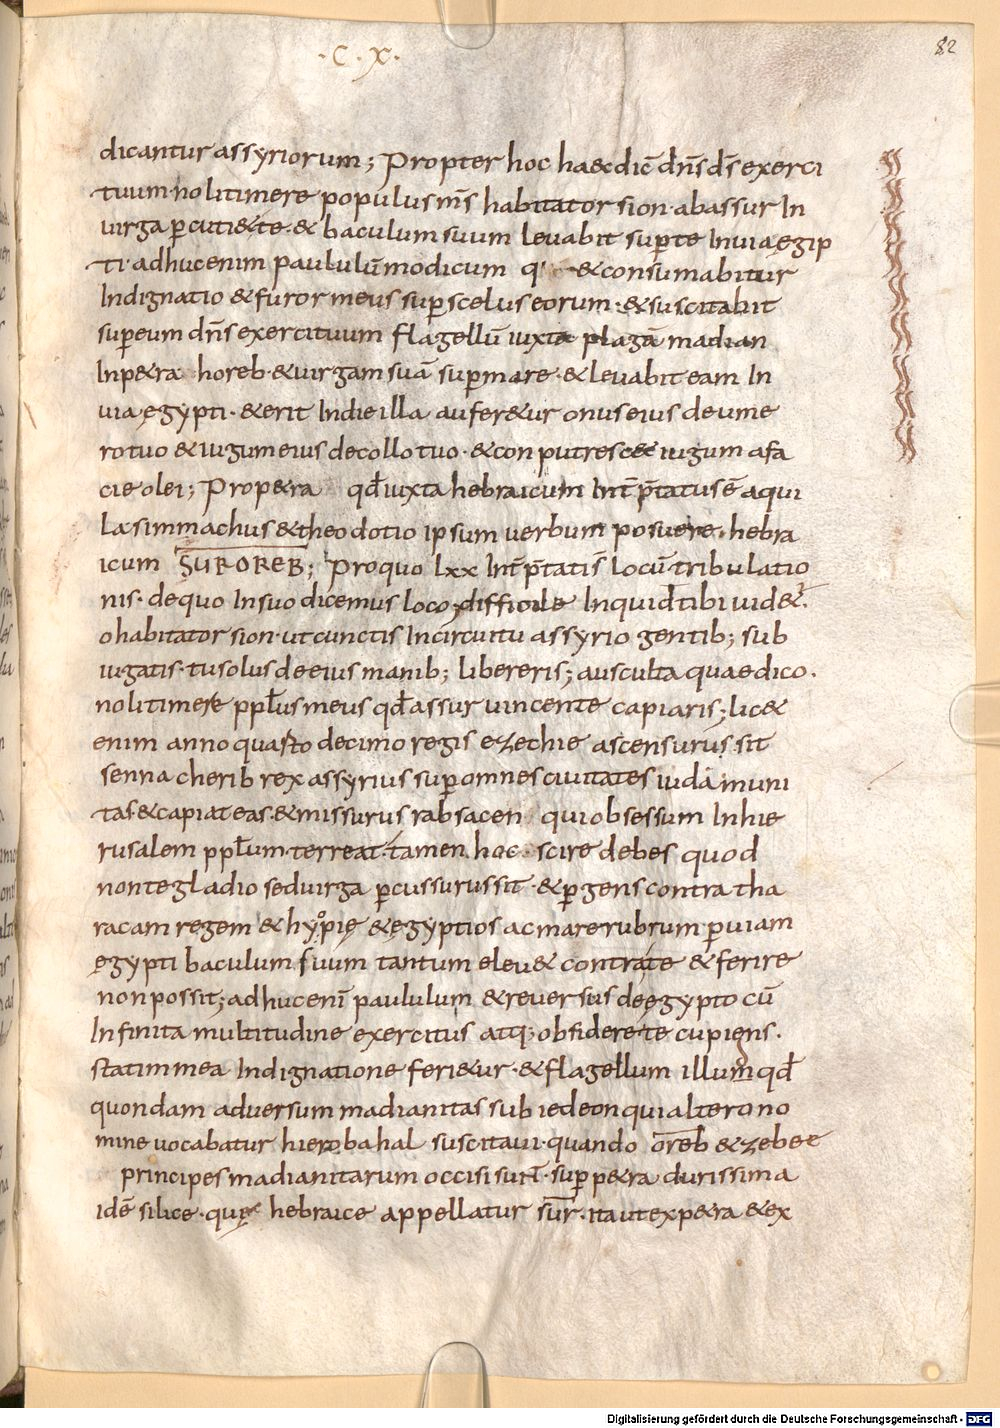 · C · X ·
82
dicantur assyriorum; Propter hoc haec dic̄ dn̄s ds̄ exerci
tuum· noli timere populus ms̄ habitator sion· ab assur In
virga p̄cuti&te· & baculum suum levabit sup̄ te In via ęgip
ti· adhuc enim paululū modicum q & consumabitur
Indignatio & furor meus sup̄ scelus eorum· & suscitabit
sup̄ eum dn̄s exercituum flagellū iuxta plagā madian
In p&ra horeb· & virgam suā sup̄ mare· & levabit eam In
via ęgypti· & erit In die illa aufer&ur onus eius de ume
ro tuo & iugum eius de collo tuo· & conputrescet iugum a fa
cie olei; Pro p&ra qđ iuxta hebraicum Int̄p̄tatus ē aqui
la· simmachus & theodotio ipsum verbum posuere· hebra
icum SUROREB; Pro quo lxx Int̄p̄tatis locū tribulatio
nis· de quo In suo dicemus loco; difficile Inquid tibi vid&ur·
o habitator sion· ut cunctis In circuitu assyrio gentib; sub
iugatis· tu solus de eius manib; libereris; ausculta quae dico·
noli timere pp̄lus meus qđ assur vincente capiaris; lic&
enim anno quarto decimo regis ezechie ascensurus sit
sennacherib rex assyrius sup̄ omnes civitates iuda muni
tas· & capiat eas· & missurus rabsacen qui obsessum In hie
rusalem pp̄lum terreat· tamen hoc scire debes quod
non te gladio sed virga p̄cussurus sit· & p̄gens contra tha
racam regem &hyopię & ęgyptios ac mare rubrum p̄ viam
ęgypti baculum suum tantum elev& contra te & ferire
non possit; adhuc enī paululum & reversus de ęgypto cū
Infinita multitudine exercitus atq; obsidere te cupiens·
statim mea Indignatione feri&ur· & flagellum illum qđ
quondam adversum madianitas sub iedeon qui altero no
mine vocabatur hierobahal suscitavi· quando oreb & zebee
principes madianitarum occisi sunt̄· sup̄ p&ra durissima
idē silice· quę hebraice appellatur sur· ita ut ex p&ra & ex
Digitalisierung gefördert durch die Deutsche Forschungsgemeinschaft - DFG